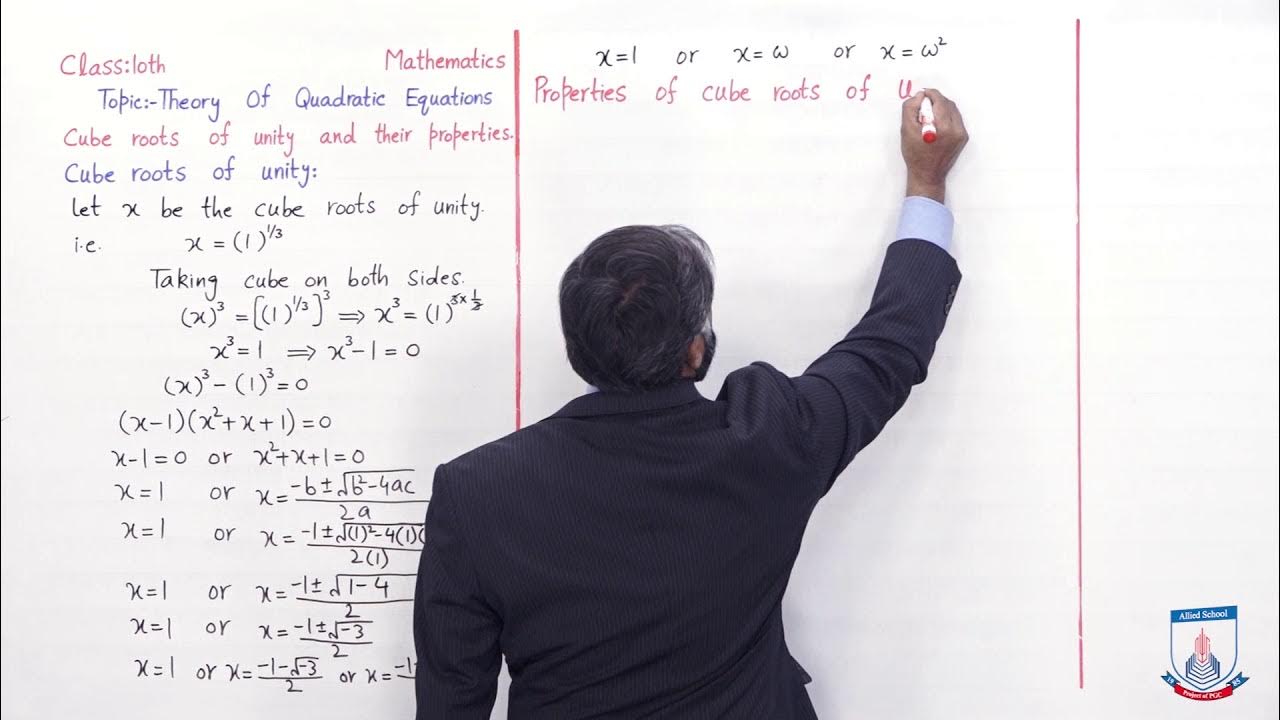 Class:10th Mathematics
Topic:-Theory Of Quadratic Equations
Cube roots of unity and their properties.
Cube roots of unity:
let x be the cube roots of unity.
i.e. x = (1)^1/3
Taking cube on both sides.
(x)³ = [(1)^1/3]³ ⟹ x³ = (1)^3×1/3
x³ = 1 ⟹ x³-1 = 0
(x)³ - (1)³ = 0
(x-1)(x²+x+1) = 0
x-1 = 0 or x²+x+1 = 0
x = 1 or x = -b±√b²-4ac / 2a
x = 1 or x = -1±√(1)²-4(1)( / 2(1)
x = 1 or x = -1±√1-4 / 2
x = 1 or x = -1±√-3 / 2
x = 1 or x = -1-√-3 / 2 or x = -1
x = 1 or x = ω or x = ω²
Properties of cube roots of u
Allied School
19 85
Project of PGC